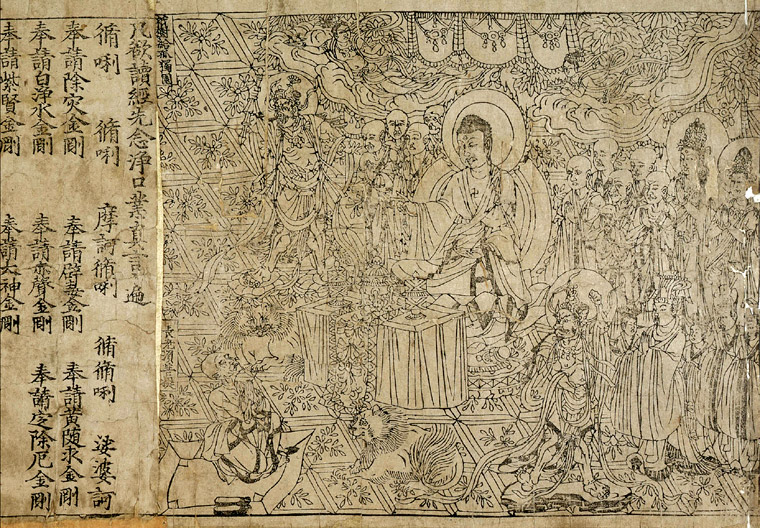 祇樹給孤獨園
長老須菩提
凡欲讀經先念淨口業真言一遍
脩唎 脩唎 摩訶脩唎 脩脩唎 娑婆訶
奉請除災金剛 奉請辟毒金剛 奉請黃随求金剛
奉請白淨水金剛 奉請赤聲金剛 奉請定除厄金剛
奉請紫賢金剛 奉請大神金剛